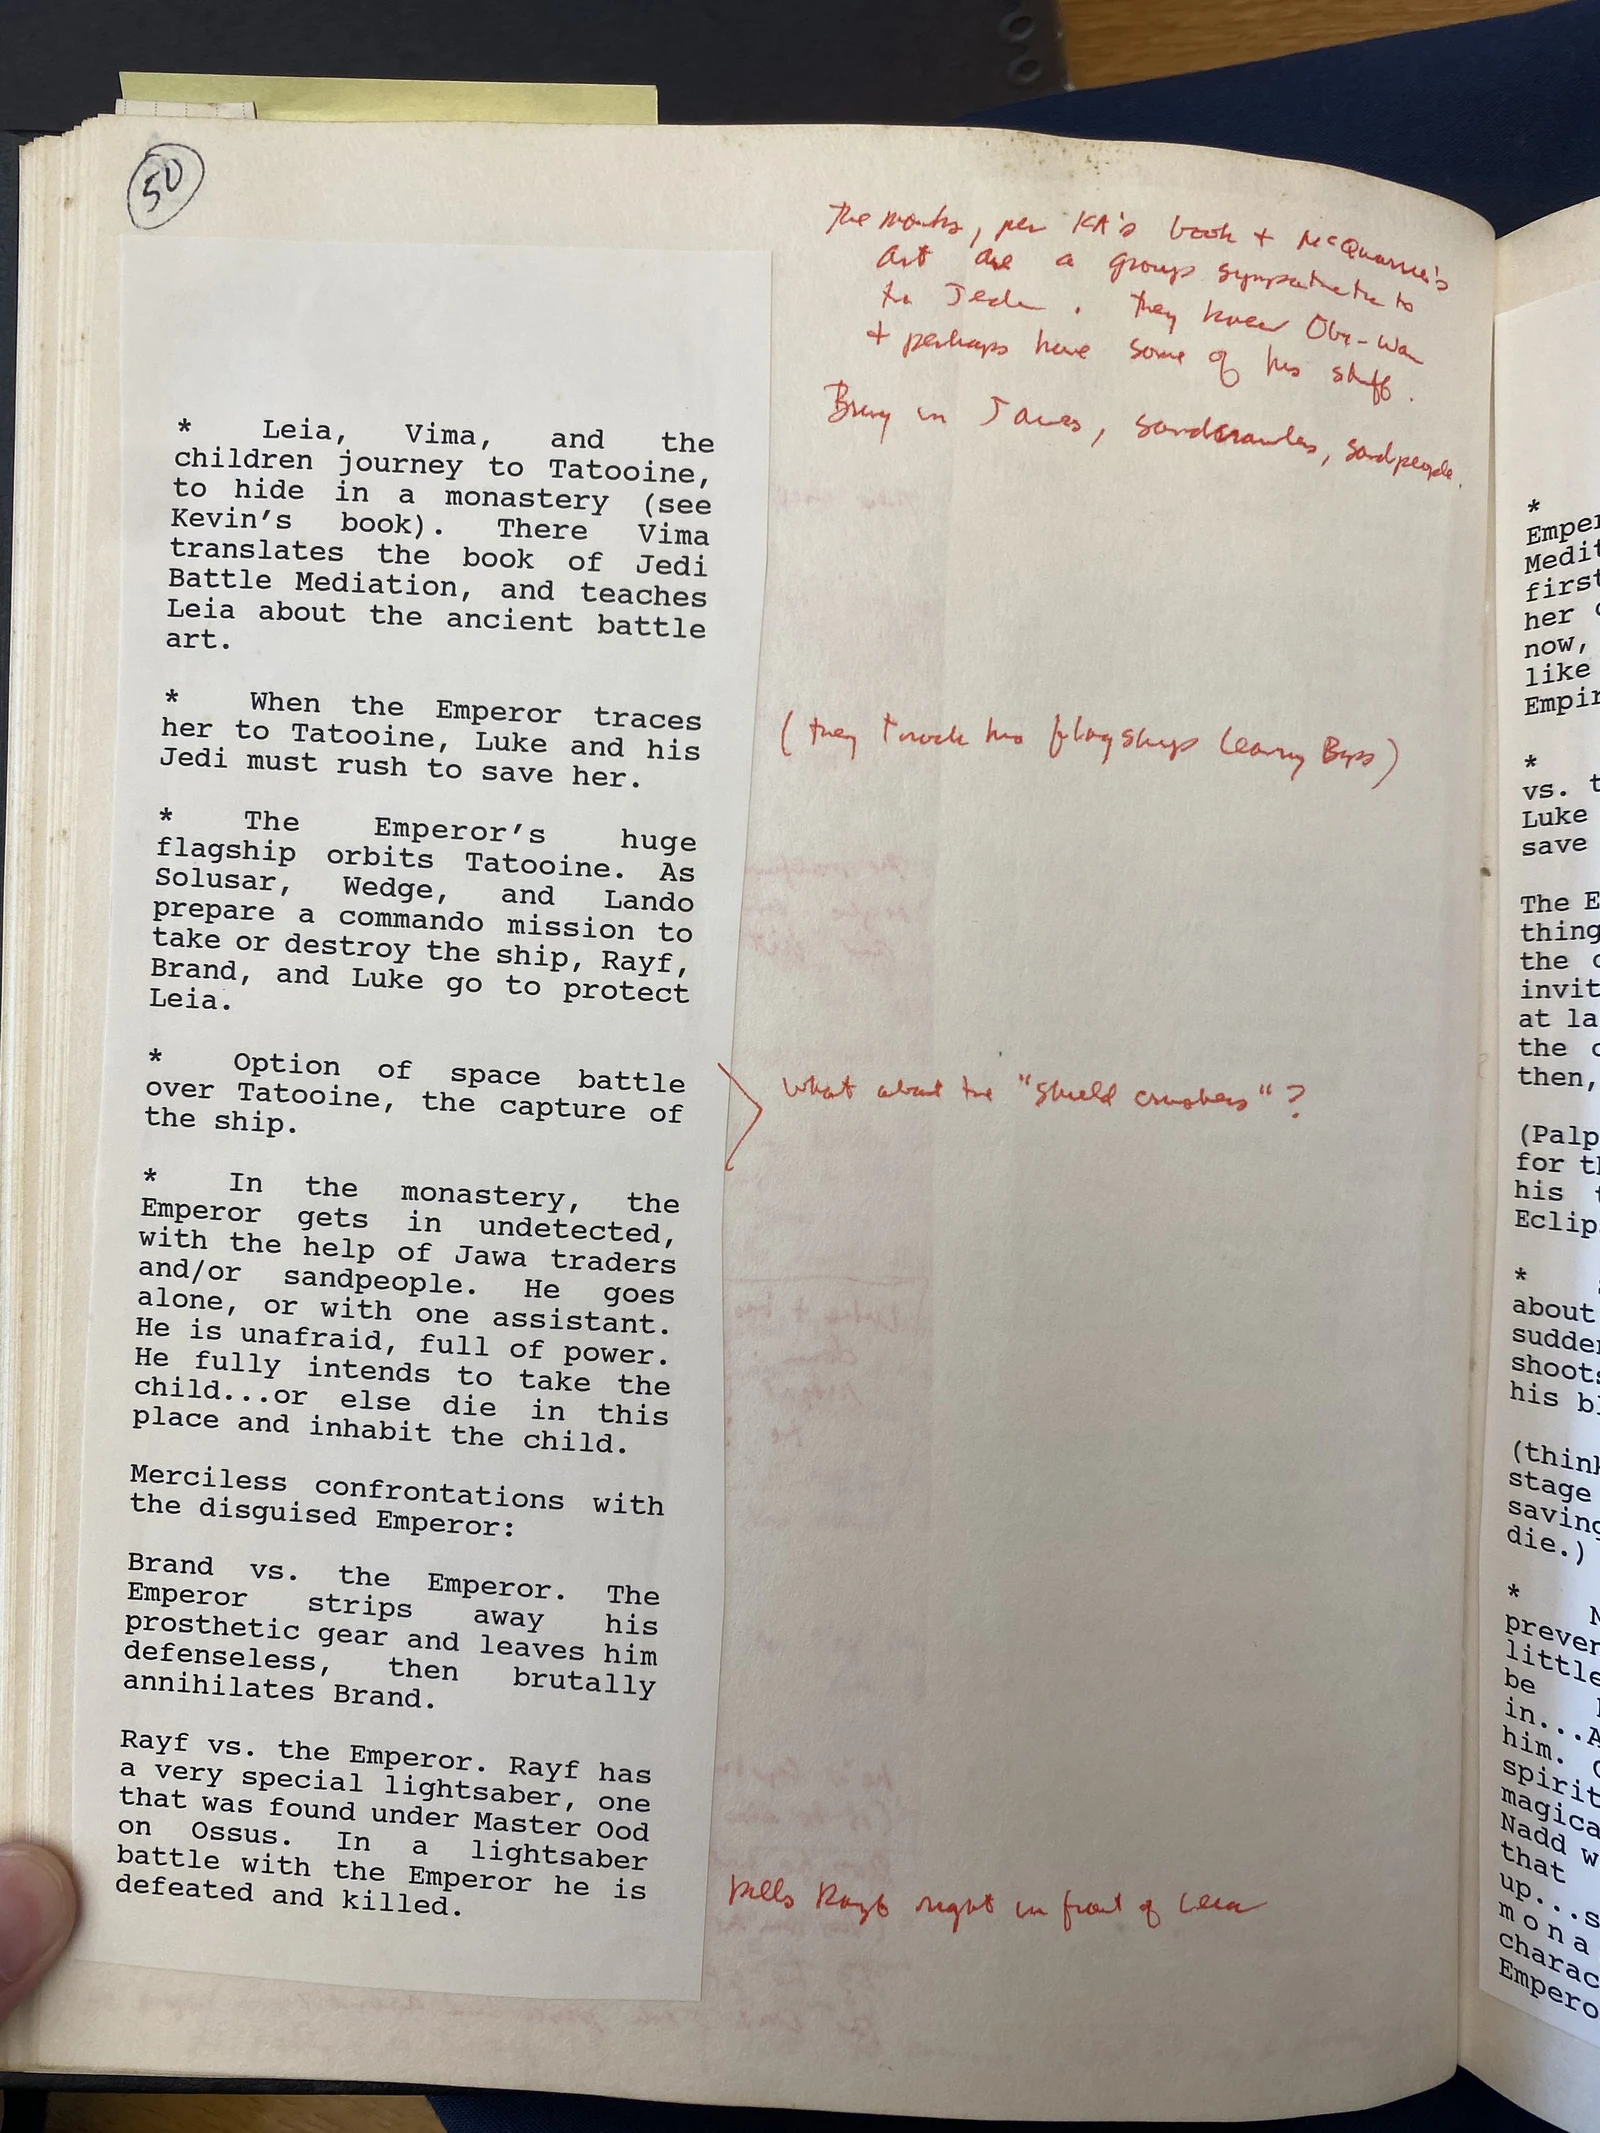 50
The monks, per KA's book + McQuarrie's
art are a group sympathetic to
to Jedi. They knew Obi-Wan
+ perhaps have some of his stuff.
Bring in Jawas, sandcrawlers, sandpeople.
* Leia, Vima, and the
children journey to Tatooine,
to hide in a monastery (see
Kevin's book). There Vima
translates the book of Jedi
Battle Mediation, and teaches
Leia about the ancient battle
art.
* When the Emperor traces
her to Tatooine, Luke and his
Jedi must rush to save her.
(they track his flagship leaving Byss)
* The Emperor's huge
flagship orbits Tatooine. As
Solusar, Wedge, and Lando
prepare a commando mission to
take or destroy the ship, Rayf,
Brand, and Luke go to protect
Leia.
* Option of space battle
over Tatooine, the capture of
the ship.
What about the "shield crushers"?
* In the monastery, the
Emperor gets in undetected,
with the help of Jawa traders
and/or sandpeople. He goes
alone, or with one assistant.
He is unafraid, full of power.
He fully intends to take the
child...or else die in this
place and inhabit the child.
Merciless confrontations with
the disguised Emperor:
Brand vs. the Emperor. The
Emperor strips away his
prosthetic gear and leaves him
defenseless, then brutally
annihilates Brand.
Rayf vs. the Emperor. Rayf has
a very special lightsaber, one
that was found under Master Ood
on Ossus. In a lightsaber
battle with the Emperor he is
defeated and killed.
kills Rayf right in front of Leia
*
Medit
first
her
now,
like
Empir
*
vs. t
Luke
save
The E
thing
the
invit
at la
the
then,
(Palp
for th
his
Eclip
*
about
sudde
shoots
his bl
(think
stage
saving
die.)
*
preven
little
be
in...A
him.
spirit
magica
Nadd w
that
up...s
mona
charac
Empero